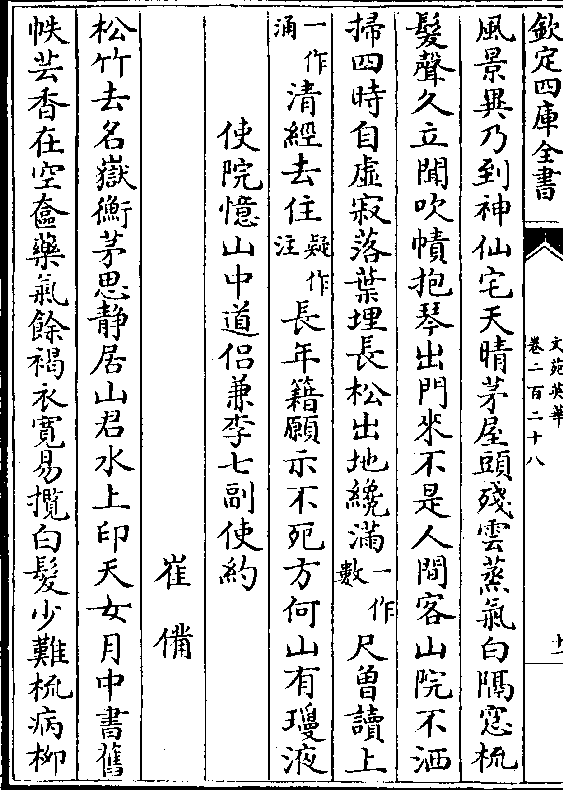 欽定四庫全書
文苑英華
卷二百二十八
十一
風景異乃到神仙宅天晴茅屋頭殘雲蒸氣白隔窓梳
髮聲久立聞吹幘抱琴出門來不是人間客山院不洒
掃四時自虛寂落葉埋長松出地纔滿一作數尺曾讀上
一作涌清經去住疑作注長年籍願示不死方何山有瓊液
使院憶山中道侶兼李七副使約
崔備
松竹去名嶽衡茅思靜居山君水上印天女月中書舊
帙芸香在空奩藥氣餘褐衣寛易攬白髮少難梳病柳